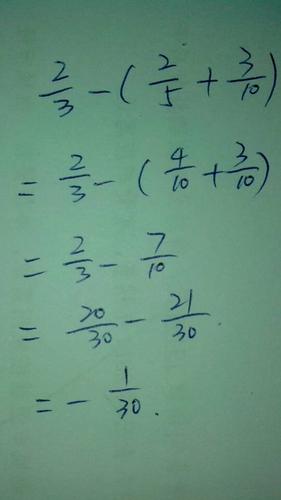 2/3 - (2/5 + 3/10)
= 2/3 - (4/10 + 3/10)
= 2/3 - 7/10
= 20/30 - 21/30
= - 1/30.